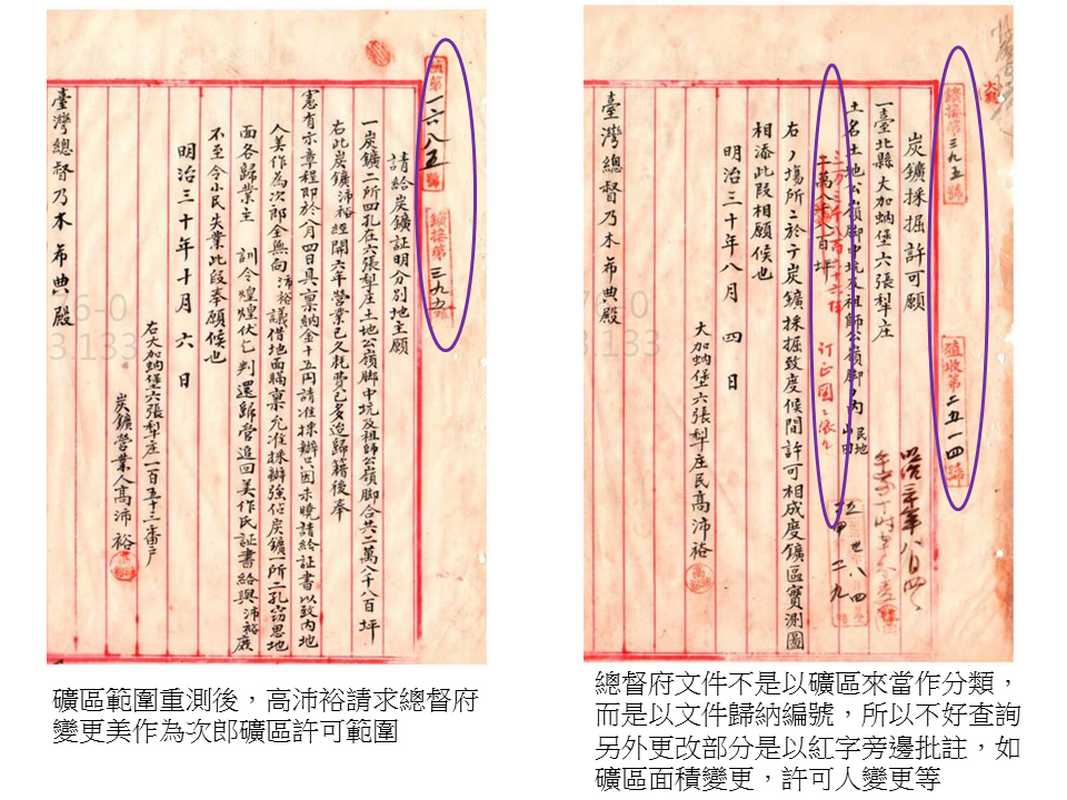 殖第一六八五號
鑛接第三九五號
請給炭鑛証明分別地主願
一炭鑛二所四孔在六張犁庄土地公嶺脚中坑及祖師公嶺脚合共二萬八千八百坪
右此炭鑛沛裕經開六年營業已久耗費已多迨歸籍後奉
憲有示章程即於八月四日具稟納金十五円請准採辦只因未曉請給証書以致內地
人美作為次郎金無向沛裕議借地面瞞稟允准採辦強佔炭鑛一所二孔窃思地
面各歸業主 訓令煌煌伏乞判還歸管追回美作氏証書給與沛裕庶
不至令小民失業此段奉願候也
明治三十年十月六日
右大加蚋堡六張犁庄一百五十三番户
炭鑛營業人高沛裕
臺灣總督乃木希典殿
礦區範圍重測後，高沛裕請求總督府
變更美作為次郎礦區許可範圍
鑛接第三九五號
殖收第二五一四號
炭鑛採掘許可願
一臺北縣大加蚋堡六張犁庄
土名土地公嶺脚中坑及祖師公嶺脚ノ內 民地 山田
二萬八千八百坪
訂正圖ニ依ル
右ノ場所ニ於テ炭鑛採掘致度候間許可相成度鑛區實測圖
相添此段相願候也
明治三十年八月四日
大加蚋堡六張犁庄民高沛裕
臺灣總督乃木希典殿
總督府文件不是以礦區來當作分類，
而是以文件歸納編號，所以不好查詢
另外更改部分是以紅字旁邊批註，如
礦區面積變更，許可人變更等